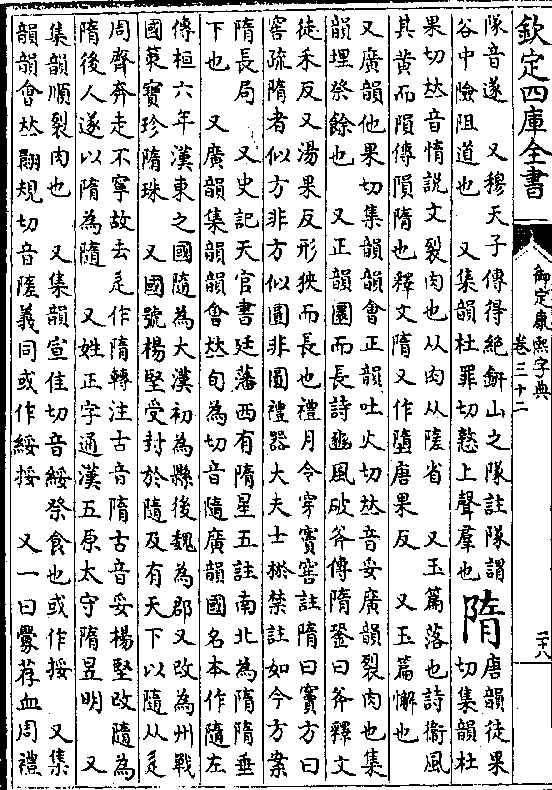 欽定四庫全書
御定康熙字典
卷三十二
二十八
隊音遂 又穆天子傳得絶鈃山之隊註隊謂
谷中險阻道也 又集韻杜罪切憝上聲羣也
隋
唐韻徒果
切集韻杜
果切𠀤音惰說文裂肉也从肉从隓省 又玉篇落也詩衛風
其黃而隕傳隕隋也釋文隋又作墮唐果反 又玉篇懈也
又廣韻他果切集韻韻會正韻吐火切𠀤音妥廣韻裂肉也集
韻埋祭餘也 又正韻圜而長詩豳風破斧傳隋銎曰斧釋文
徒禾反又湯果反形狹而長也禮月令穿竇窖註隋曰竇方曰
窖疏隋者似方非方似圜非圜禮器大夫士棜禁註如今方案
隋長局 又史記天官書廷藩西有隋星五註南北為隋隋垂
下也 又廣韻集韻韻會𠀤旬為切音隨廣韻國名本作隨左
傳桓六年漢東之國隨為大漢初為縣後魏為郡又改為州戰
國䇿寶珍隋珠 又國號楊堅受封於隨及有天下以隨从辵
周齊奔走不寧故去辵作隋轉注古音隋古音妥楊堅改隨為
隋後人遂以隋為隨 又姓正字通漢五原太守隋昱明 又
集韻順裂肉也 又集韻宣佳切音綏祭食也或作挼 又集
韻韻會𠀤翾規切音隓義同或作綏挼 又一曰釁荐血周禮